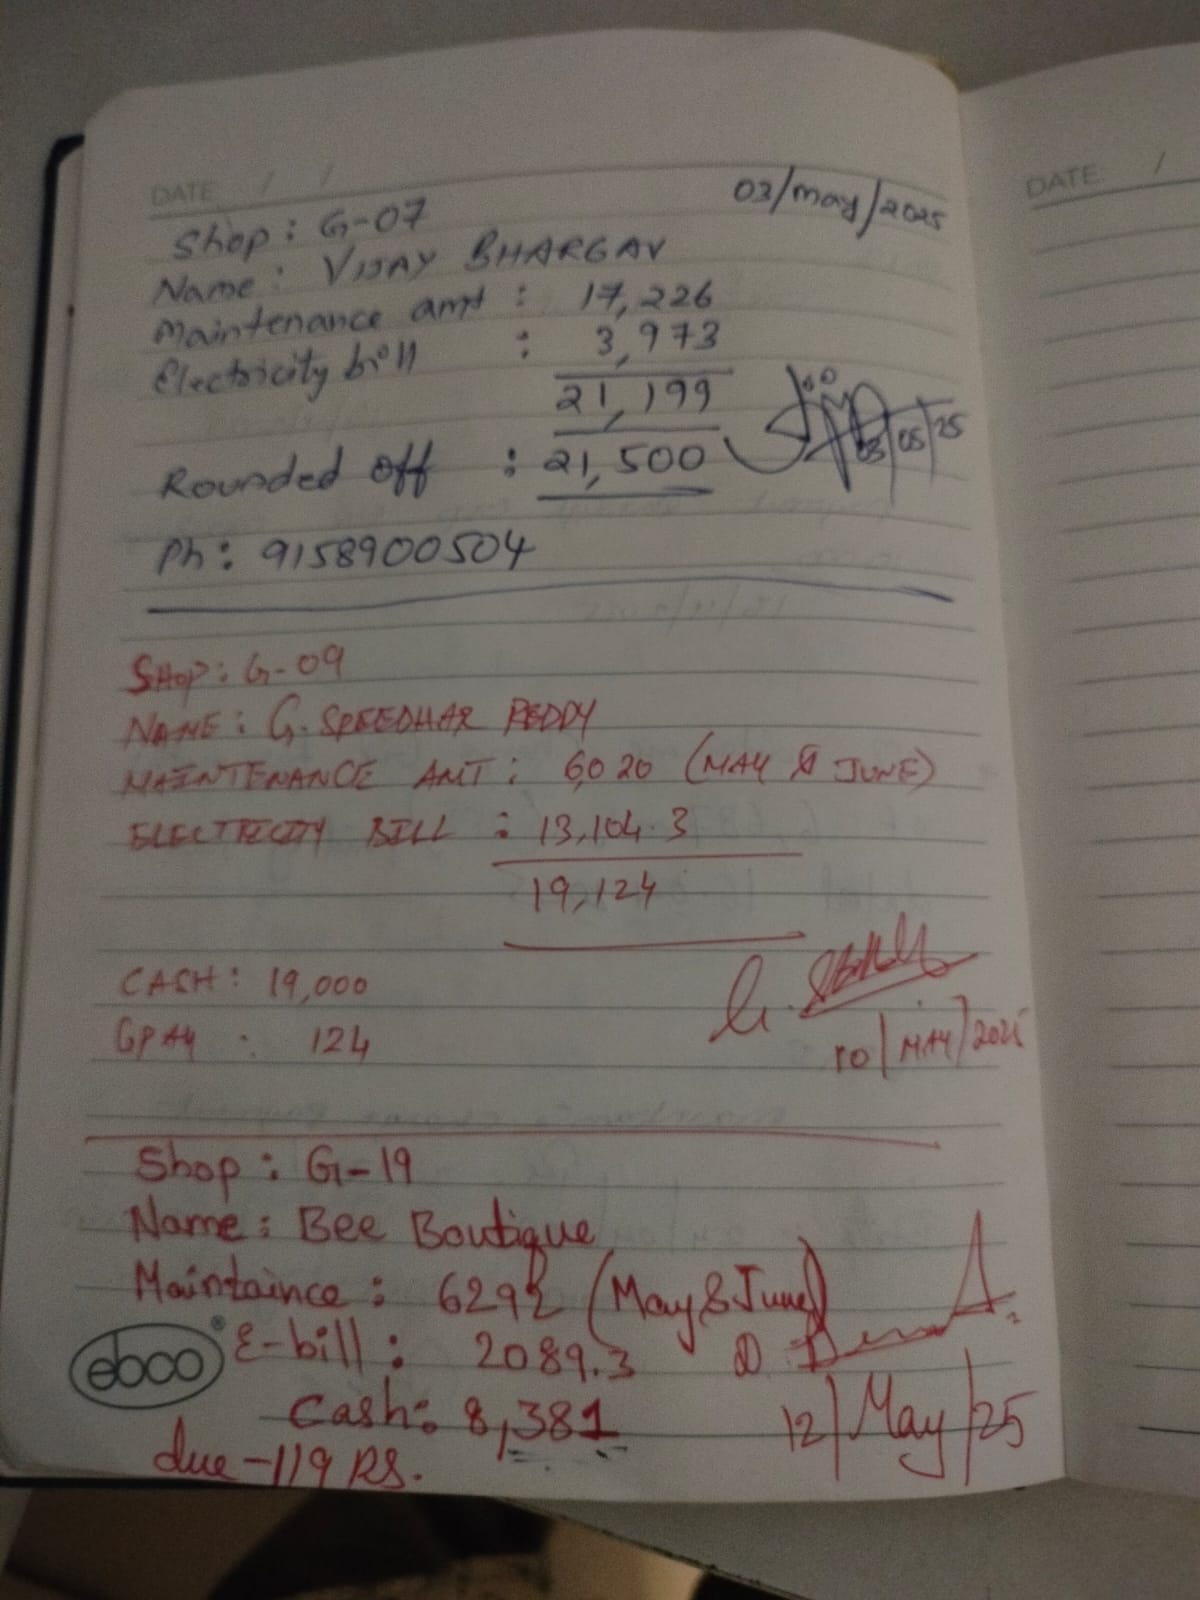 DATE / /
03/may/2025
Shop: G-07
Name: VIJAY BHARGAV
Maintenance amt : 17,226
Electricity bill : 3,973
21,199
03/05/25
Rounded off : 21,500
Ph: 9158900504
SHOP: G-09
NAME: G. SREEDHAR REDDY
MAINTENANCE AMT: 6020 (MAY & JUNE)
ELECTRICITY BILL : 13,104.3
19,124
CASH: 19,000
GPAY : 124
10/MAY/2025
Shop: G-19
Name: Bee Boutique
Maintaince: 6292 (May & June)
ebco
E-bill: 2089.3
Cash: 8,381
12/May/25
due -119 RS.
DATE /